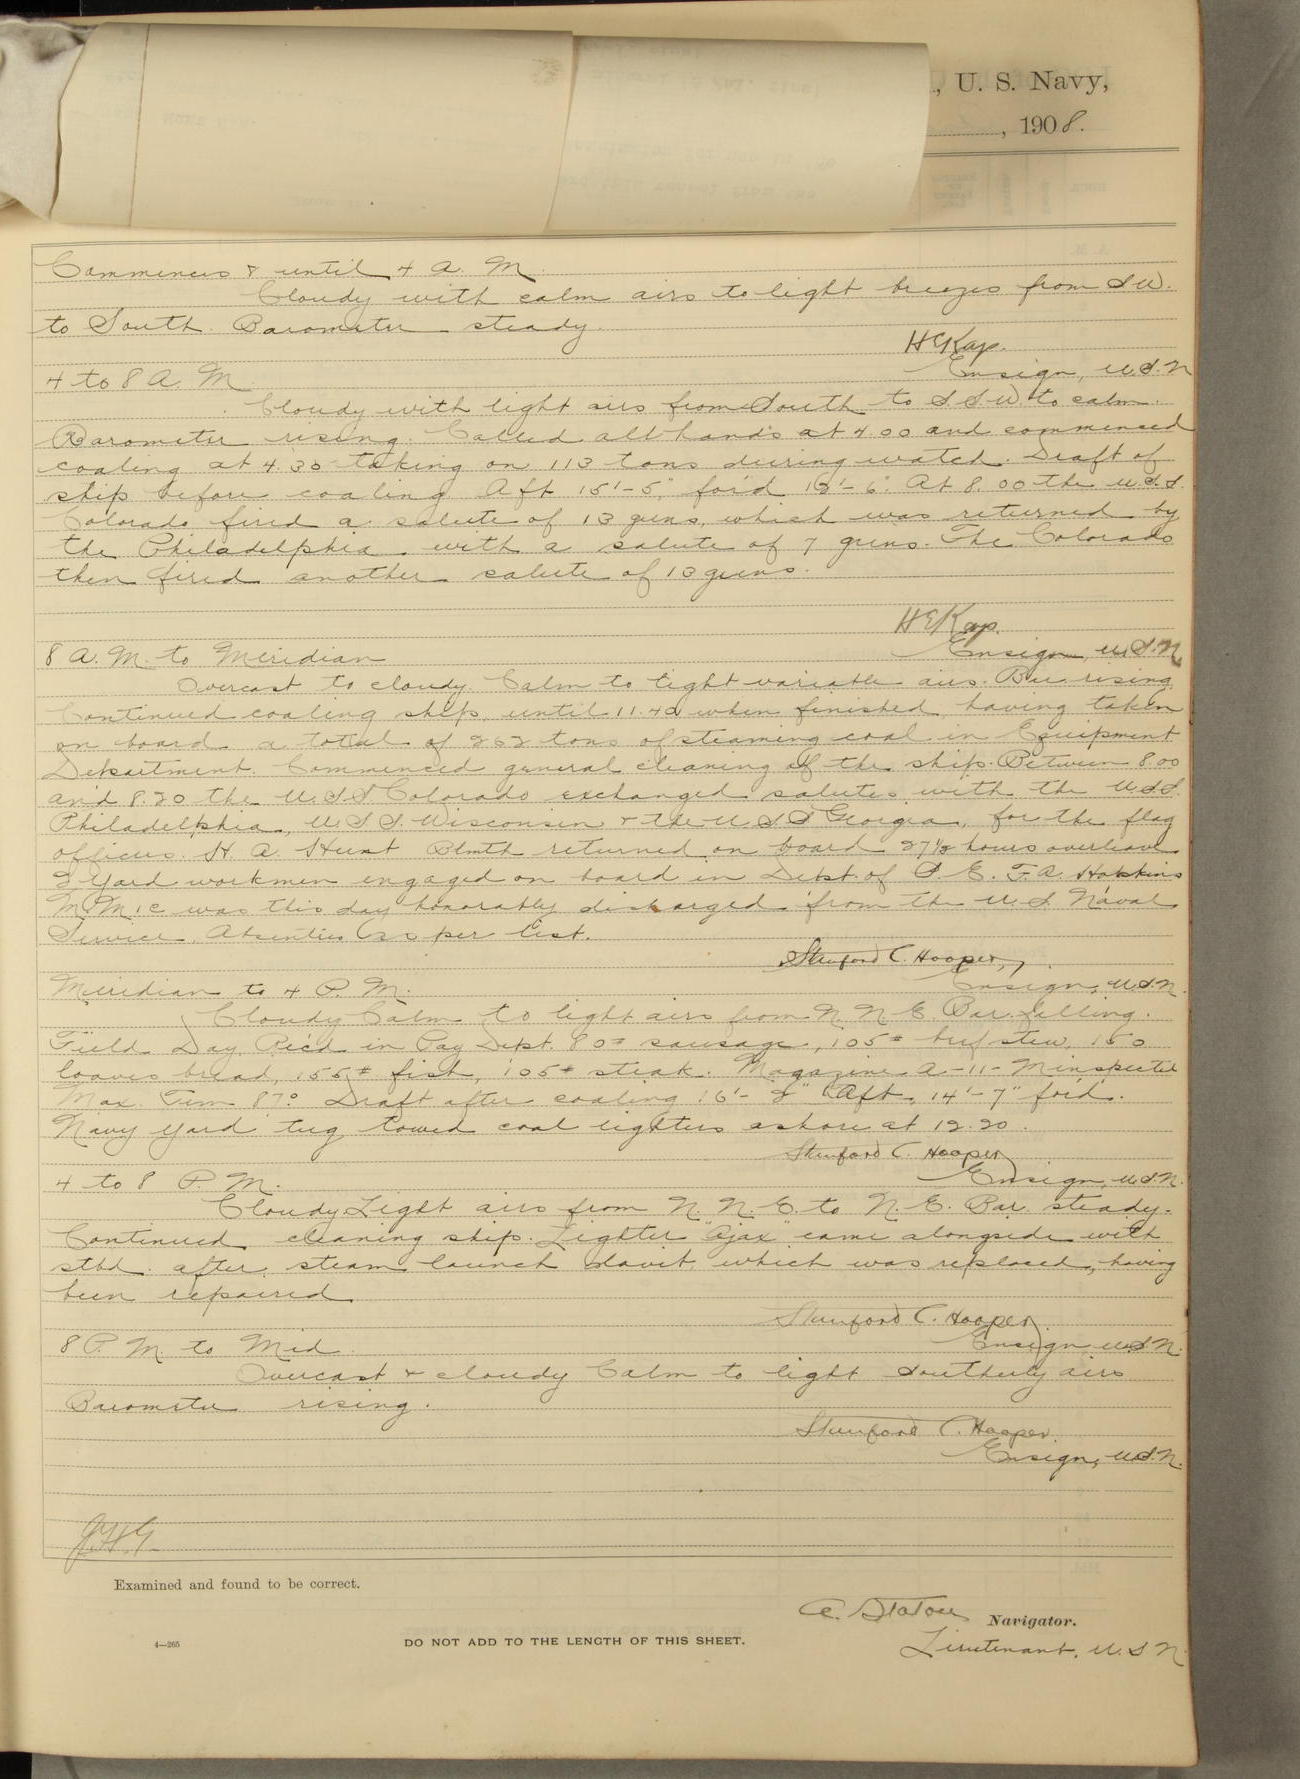 , U. S. Navy,
, 1908.
Commences & until 4 A. M.
Cloudy with calm airs to light breezes from SW.
to South. Barometer steady.
H E Kay.
Ensign, U.S.N
4 to 8 A. M.
Cloudy with light airs from South to S S.W. to calm.
Barometer rising. Called all hands at 4.00 and commenced
coaling at 4.30 taking on 113 tons during watch. Draft of
ship before coaling Aft 15'-5", for'd 13'-6". At 8.00 the U.S.S.
Colorado fired a salute of 13 guns, which was returned by
the Philadelphia with a salute of 7 guns. The Colorado
then fired another salute of 13 guns.
H E Kay.
Ensign, U.S.N.
8 A. M. to Meridian
Overcast to cloudy. Calm to light variable airs. Bar. rising.
Continued coaling ship until 11.40 when finished, having taken
on board a total of 262 tons of steaming coal in Equipment
Department. Commenced general cleaning of the ship. Between 8.00
and 8.20 the U.S.S. Colorado exchanged salutes with the U.S.S.
Philadelphia, U.S.S. Wisconsin & the U.S.S. Georgia, for the flag
officers. H. A. Hunt Blmth returned on board 27½ hours overleave.
2 Yard workmen engaged on board in Dept. of S. E. F. A. Hopkins
M.M.1c was this day honorably discharged from the U.S. Naval
Service. Absentees as per list.
Stanford C. Hooper,
Ensign, U.S.N.
Meridian to 4 P. M.
Cloudy Calm to light airs from N. N. E. Bar. falling.
Field Day. Rec'd in Pay Dept. 80# sausage, 105# beef stew, 150
loaves bread, 155# fish, 105# steak. Magazine A-11-M inspected
Max. Tem 87° Draft after coaling 16'-2" Aft, 14'-7" for'd.
Navy Yard tug towed coal lighters ashore at 12.20.
Stanford C. Hooper
Ensign, U.S.N.
4 to 8 P. M.
Cloudy Light airs from N. N. E. to N. E. Bar. steady.
Continued cleaning ship. Lighter "Ajax" came alongside with
stbd. after steam launch davit, which was replaced, having
been repaired.
Stanford C. Hooper
Ensign U.S.N.
8 P. M. to Mid.
Overcast & cloudy Calm to light Southerly airs
Barometer rising.
Stanford C. Hooper.
Ensign, U.S.N.
Examined and found to be correct.
Navigator.
4—265
DO NOT ADD TO THE LENGTH OF THIS SHEET.
Lieutenant, U.S.N.